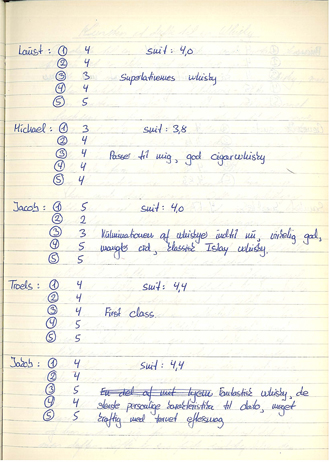 Laust: ① 4 snit: 4,0
② 4
③ 3 Superlativernes whisky
④ 4
⑤ 5
Michael: ① 3 snit: 3,8
② 4
③ 4 Passer til mig, god cigarwhisky
④ 4
⑤ 4
Jacob: ① 5 snit: 4,0
② 2
③ 3 Kulminationen af whiskyer indtil nu, virkelig god,
④ 5 mangler ord, klassisk Islay whisky.
⑤ 5
Troels: ① 4 snit: 4,4
② 4
③ 4 First class.
④ 5
⑤ 5
Jakob: ① 4 snit: 4,4
② 4
③ 5 En del af mit hjem fantastisk whisky, de
④ 4 personlige karakteristika til dato, meget
⑤ 5 kraftig med tørvet eftersmag